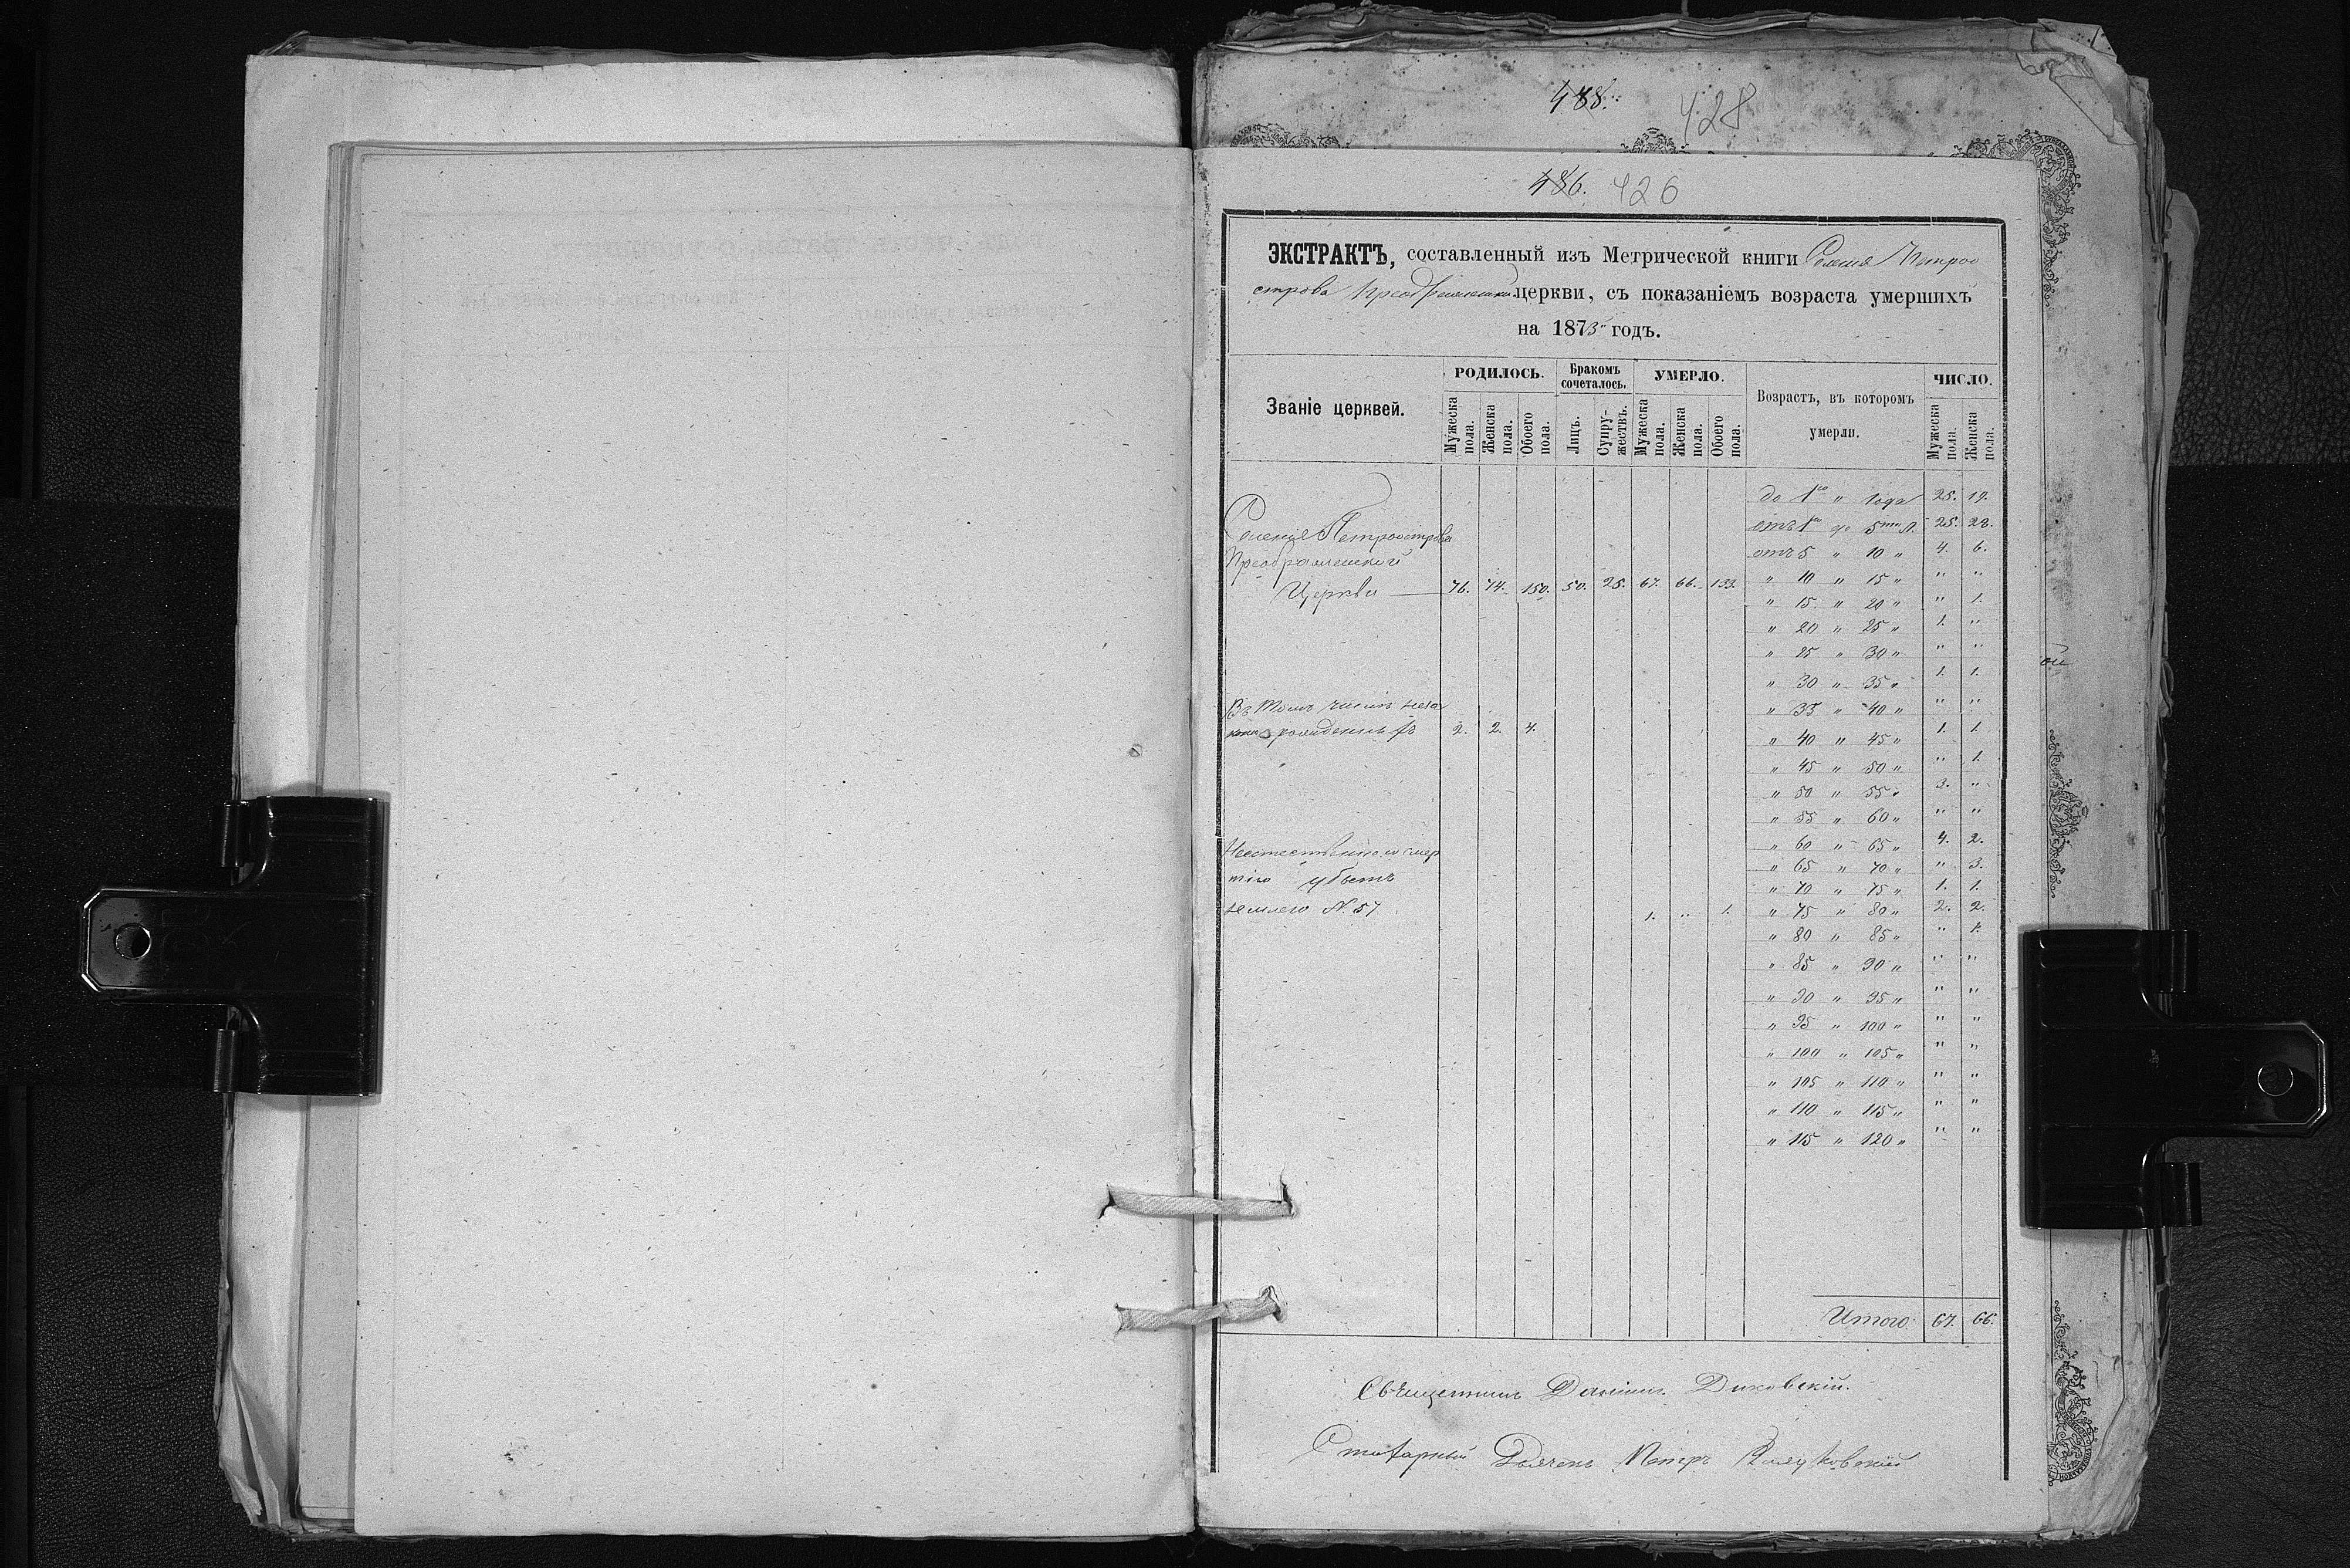 488. 428
486. 426
ЭКСТРАКТЪ, составленный изъ Метрической книги Селенія Петроо
строва Преображенской церкви, съ показаніемъ возраста умершихъ
на 1873 годъ.
Званіе церквей.
РОДИЛОСЬ.
Мужеска пола.
Женска пола.
Обоего пола.
Бракомъ сочеталось.
Лицъ.
Супружествъ.
УМЕРЛО.
Мужеска пола.
Женска пола.
Обоего пола.
Возрастъ, въ которомъ
умерли.
ЧИСЛО.
Мужеска пола.
Женска пола.
Селенія Петроострова
Преображенской
Церкви — 76. 74. 150. 50. 25. 67. 66. 133.
Въ томъ числѣ неза
рожденныхъ 2. 2. 4.
Неестественною смер
тію убитъ
землею № 57 1. " 1.
до 1го " года 25. 19.
отъ 1го до 5ти л. 25. 28.
отъ 5 " 10 " 4. 6.
" 10 " 15 " " "
" 15 " 20 " " 1.
" 20 " 25 " 1. "
" 25 " 30 " " "
" 30 " 35 " 1. 1.
" 35 " 40 " " "
" 40 " 45 " 1. 1.
" 45 " 50 " " 1.
" 50 " 55 " 3. "
" 55 " 60 " " "
" 60 " 65 " 4. 2.
" 65 " 70 " " 3.
" 70 " 75 " 1. 1.
" 75 " 80 " 2. 2.
" 80 " 85 " " 1.
" 85 " 90 " " "
" 90 " 95 " " "
" 95 " 100 " " "
" 100 " 105 " " "
" 105 " 110 " " "
" 110 " 115 " " "
" 115 " 120 " " "
Итого: 67. 66.
Священникъ Даніилъ Диковскій.
Дьячекъ Петръ